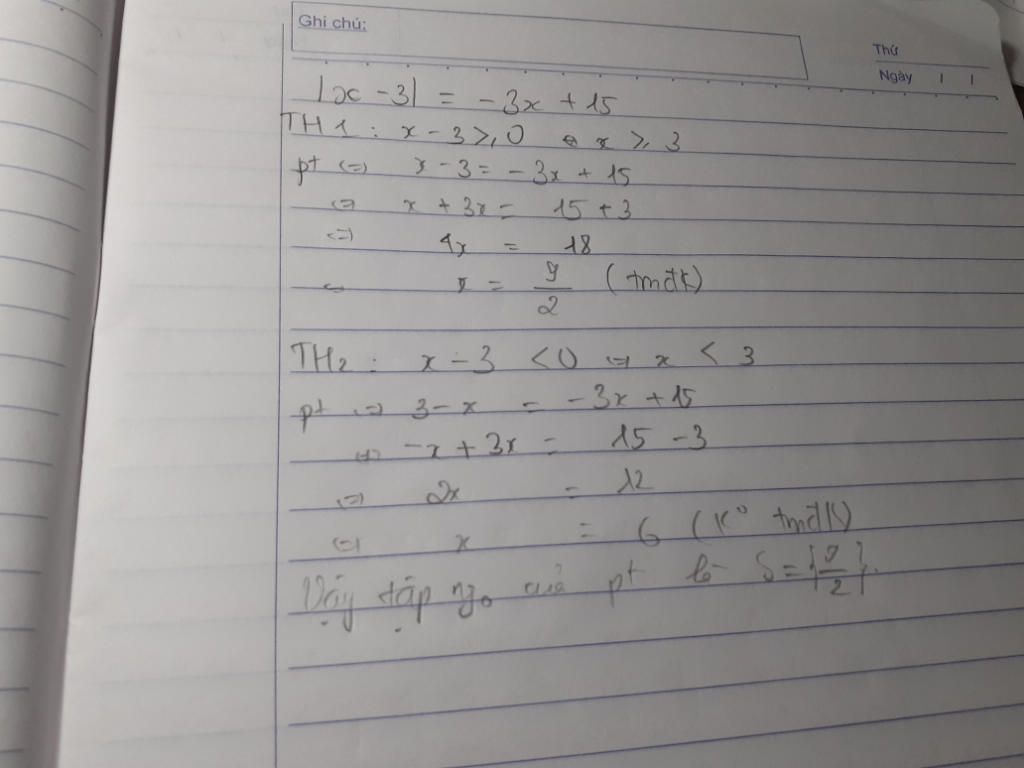 Ghi chú:
Thứ
Ngày / /
|x - 3| = -3x + 15
TH1: x - 3 ≥ 0 ⇔ x ≥ 3
pt ⇔ x - 3 = -3x + 15
⇔ x + 3x = 15 + 3
⇔ 4x = 18
⇔ x = 9/2 (tmđk)
TH2: x - 3 < 0 ⇔ x < 3
pt ⇔ 3 - x = -3x + 15
⇔ -x + 3x = 15 - 3
⇔ 2x = 12
⇔ x = 6 (K° tmđk)
Vậy tập ng° của pt là S = {9/2}.